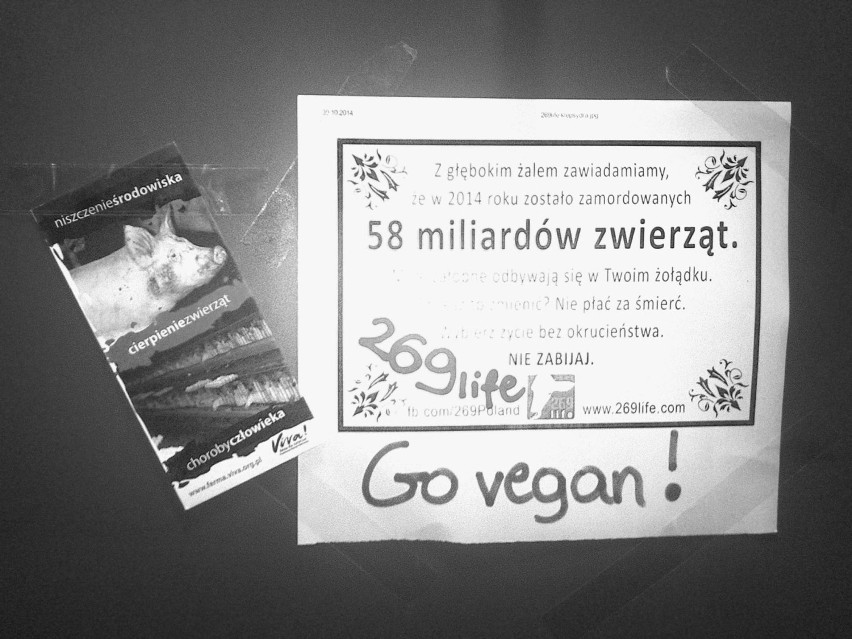 niszczenieśrodowiska
cierpieniezwierząt
chorobyczłowieka
Viva!
www.farma.viva.org.pl
30.10.2014
Z głębokim żalem zawiadamiamy,
że w 2014 roku zostało zamordowanych
58 miliardów zwierząt.
odbywają się w Twoim żołądku.
to zmienić? Nie płać za śmierć.
Wybierz życie bez okrucieństwa.
NIE ZABIJAJ.
269life
fb.com/269Poland
269
www.269life.com
Go vegan!